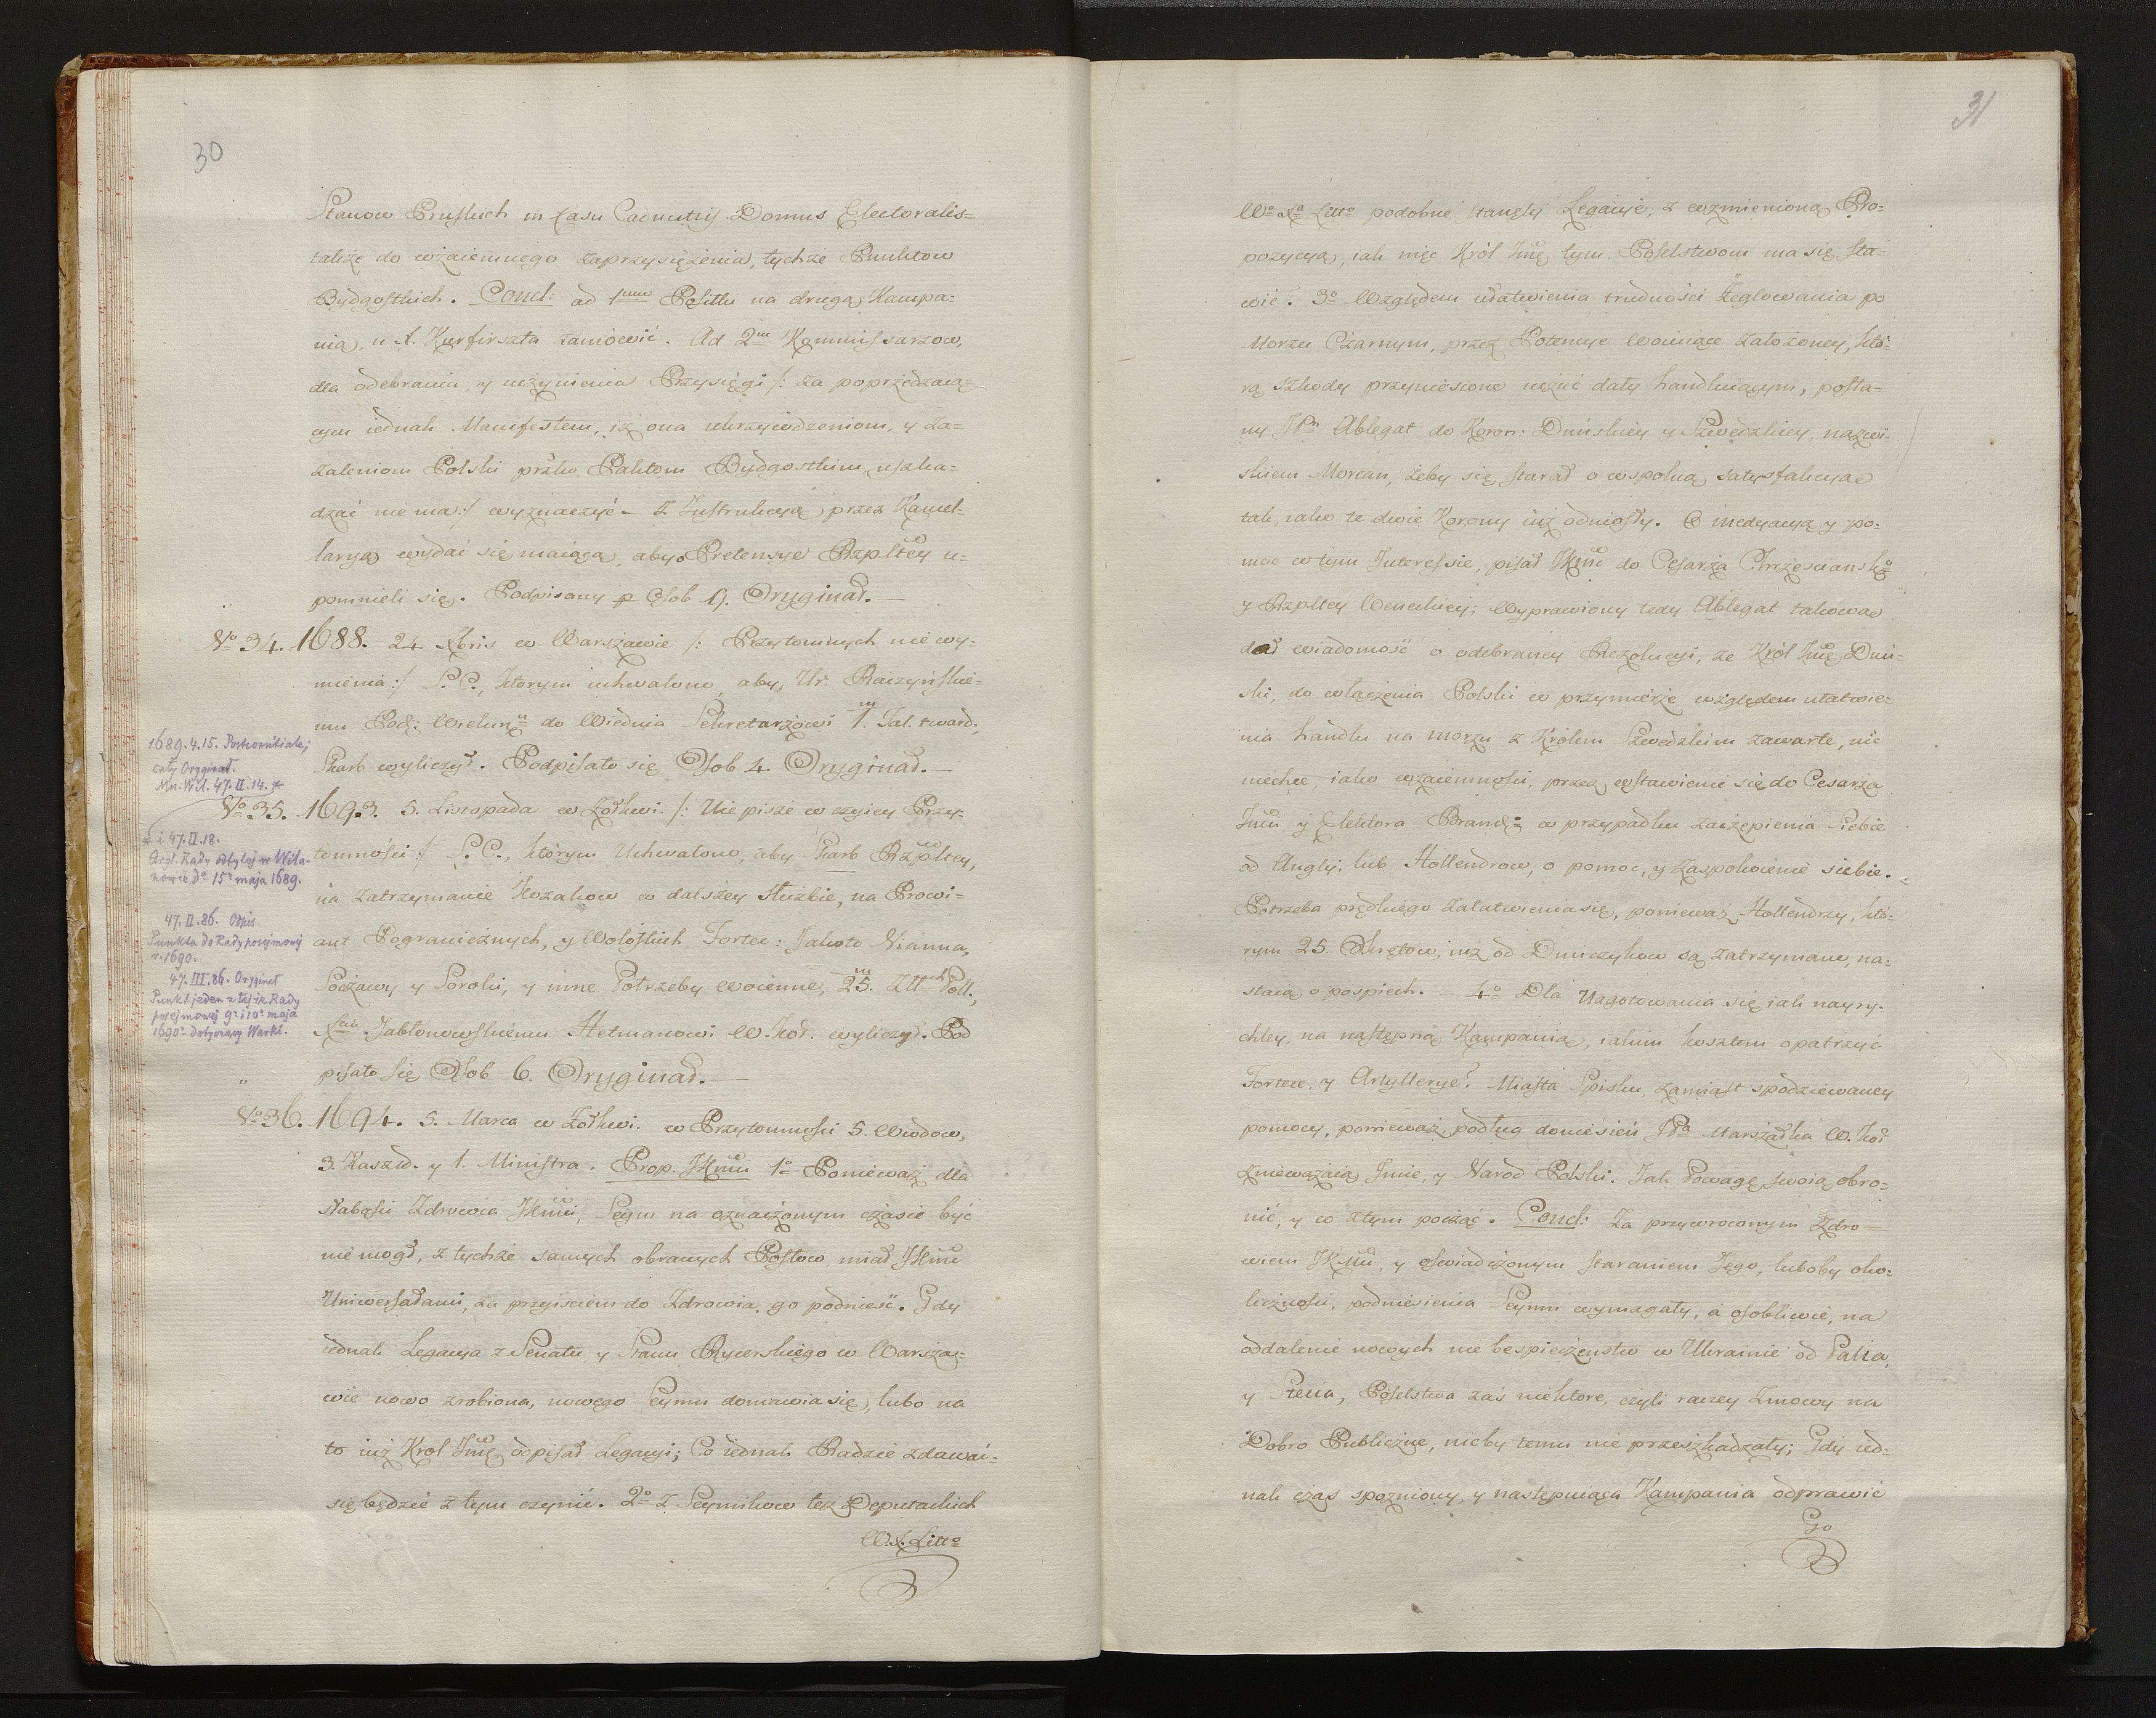 30
Stanow Pruskich in Casu Caducitatis Domus Electoralis=
takze do wzaiemnego zaprzysiężenia, tychze Punktow
Bydgoskich. Concl: ad 1mum Posiłki na drugą Kampa=
nią, u X. Kurfirszta zamówić. Ad 2m Kommissarzow,
dla odebrania y uczynienia Przysięgi /: za poprzedzaią=
cym iednak Manifestem, iż ona ukrzywdzeniom, y za=
żaleniom Polski przko Paktom Bydgoskim, uszka=
dzać nie ma :/ wyznaczyć – z Instrukcyą przez Kancel=
laryą wydać się maiącą, aby o Pretensye Rzpltey u=
pomnieli się. Podpisany p Osob 9. Oryginał. —
No 34. 1688. 24 Xbris w Warszawie /: Przytomnych nie wy=
mienia :/ S.C., ktorym uchwalono, aby Ur. Raczyńskie=
mu Pod: Wielunu do Wiednia Sekretarzowi 1m. Tal. tward.
Skarb wyliczył. Podpisało się Osob 4 Oryginał. —
1689. 4. 15. Postcomitialej
cały Oryginał.
Mn. Vil. 47. II. 14. *
No 35. 1693. 5. Listopada w Zołkwi. /: Nie pisze w czyiey Przy=
tomności :/ S.C., którym Uchwalono, aby Skarb Rzpltey,
na zatrzymanie Kozakow w dalszey Służbie, na Prowi=
ant Pogranicznych, y Wołoskich Fortec: Jakoto Niamna,
Soczawy y Soroki, y inne Potrzeby woienne, 25.m Złtch Poll.,
Xciu Jabłonowskiemu Hetmanowi W. Kor. wyliczył. Pod
pisało się Osob 6. Oryginał. —
* i 47. II. 18.
Akt. Rady odbytej w Wila-
nowie do 15o maja 1689.
47. II. 86. Opis
Punkta do Rady posejmowej
r. 1690.
47. III. 86. Oryginał
Punkt jeden z tejże Rady
posejmowej 9o i 10o maja
1690o dotyczący Warki.
No 36. 1694. 5. Marca w Zołkwi. w Przytomności 5. Wwodow,
3. Kaszd. y 1. Ministra. Prop. JKmci 1o Ponieważ dla
słabości Zdrowia JKmci, Seym na oznaczonym czasie być
nie mogł, z tychże samych obranych Posłow, miał JKmć
Uniwersałami, za przyisciem do Zdrowia, go podnieść. Gdy
iednak Legacya z Senatu y Stanu Rycerskiego w Warsza=
wie nowo zrobiona, nowego Seymu domawia się, lubo na
to iuż Krol Jmć odpisał Legacyi; Co iednak Radzie zdawać=
się będzie z tym czynić. 2o Z Seymikow też Deputackich
W.X. Litto
31
Wo Xa Litto podobne stanęły Legacye, z wzmienioną Pro=
pozycyą, iak więc Król Jmć tym Poselstwom ma się sta=
wić? 3o Względem ułatwienia trudności żeglowania po
Morzu Czarnym, przez Potencye woiuiące założoney, któ=
rą szkody przyniesione uczuć dały handluiącym, posła=
ny JPn Ablegat do Koron: Duńskiey y Szwedzkiey, nazwi=
skiem Morean, żeby się starał o wspolną satysfakcyą
tak, iako te dwie Korony iuż odniosły. O medyacyą y po=
moc w tym Interessie, pisał JKmć do Cesarza Chrześcianskgo
y Rzpltey Weneckiey; Wyprawiony tedy Ablegat takową
dał wiadomość o odebraney Rezolucyi, że Król Jmć Duń=
ski, do włączenia Polski w przymierze względem ułatwie=
nia handlu na morzu z Królem Szwedzkim zawarte, nic
niechce, iako wzaiemności, przez wstawienie się do Cesarza
Jmci y Elektora Brand: w przypadku zaczepienia siebie
od Anglii, lub Hollendrow, o pomoc, y zaspokoienie siebie.
Potrzeba prędkiego załatwienia się, ponieważ Hollendrzy, któ=
rym 25. Okrętow, iuż od Duńczykow są zatrzymane, na=
staią o pospiech. — 4o Dla Ugotowania się iak nayry=
chley, na następną Kampanią, iakim kosztem opatrzyć
Fortece, y Artylleryę? Miasta Spisku, zamiast spodziewaney
pomocy, ponieważ podług doniesień JPa Marszałka W. Kor
znieważaią Imie, y Narod Polski. Jak Powagę swoią obro=
nić, y co z tym począć. Concl: Za przywroconym Zdro—
wiem JKMci, y oświadczonym staraniem Jego, lubo by oko=
liczności, podniesienia Seymu wymagały, a osobliwie, na
oddalenie nowych nie bespieczeństw w Ukrainie od Palia,
y Stenia, Poselstwa zaś niektore, czyli raczey Zmowy na
Dobro Publiczne, nieby temu nie przeszkadzały; Gdy ied=
nak czas spozniony, y następuiąca Kampania odprawić
Go